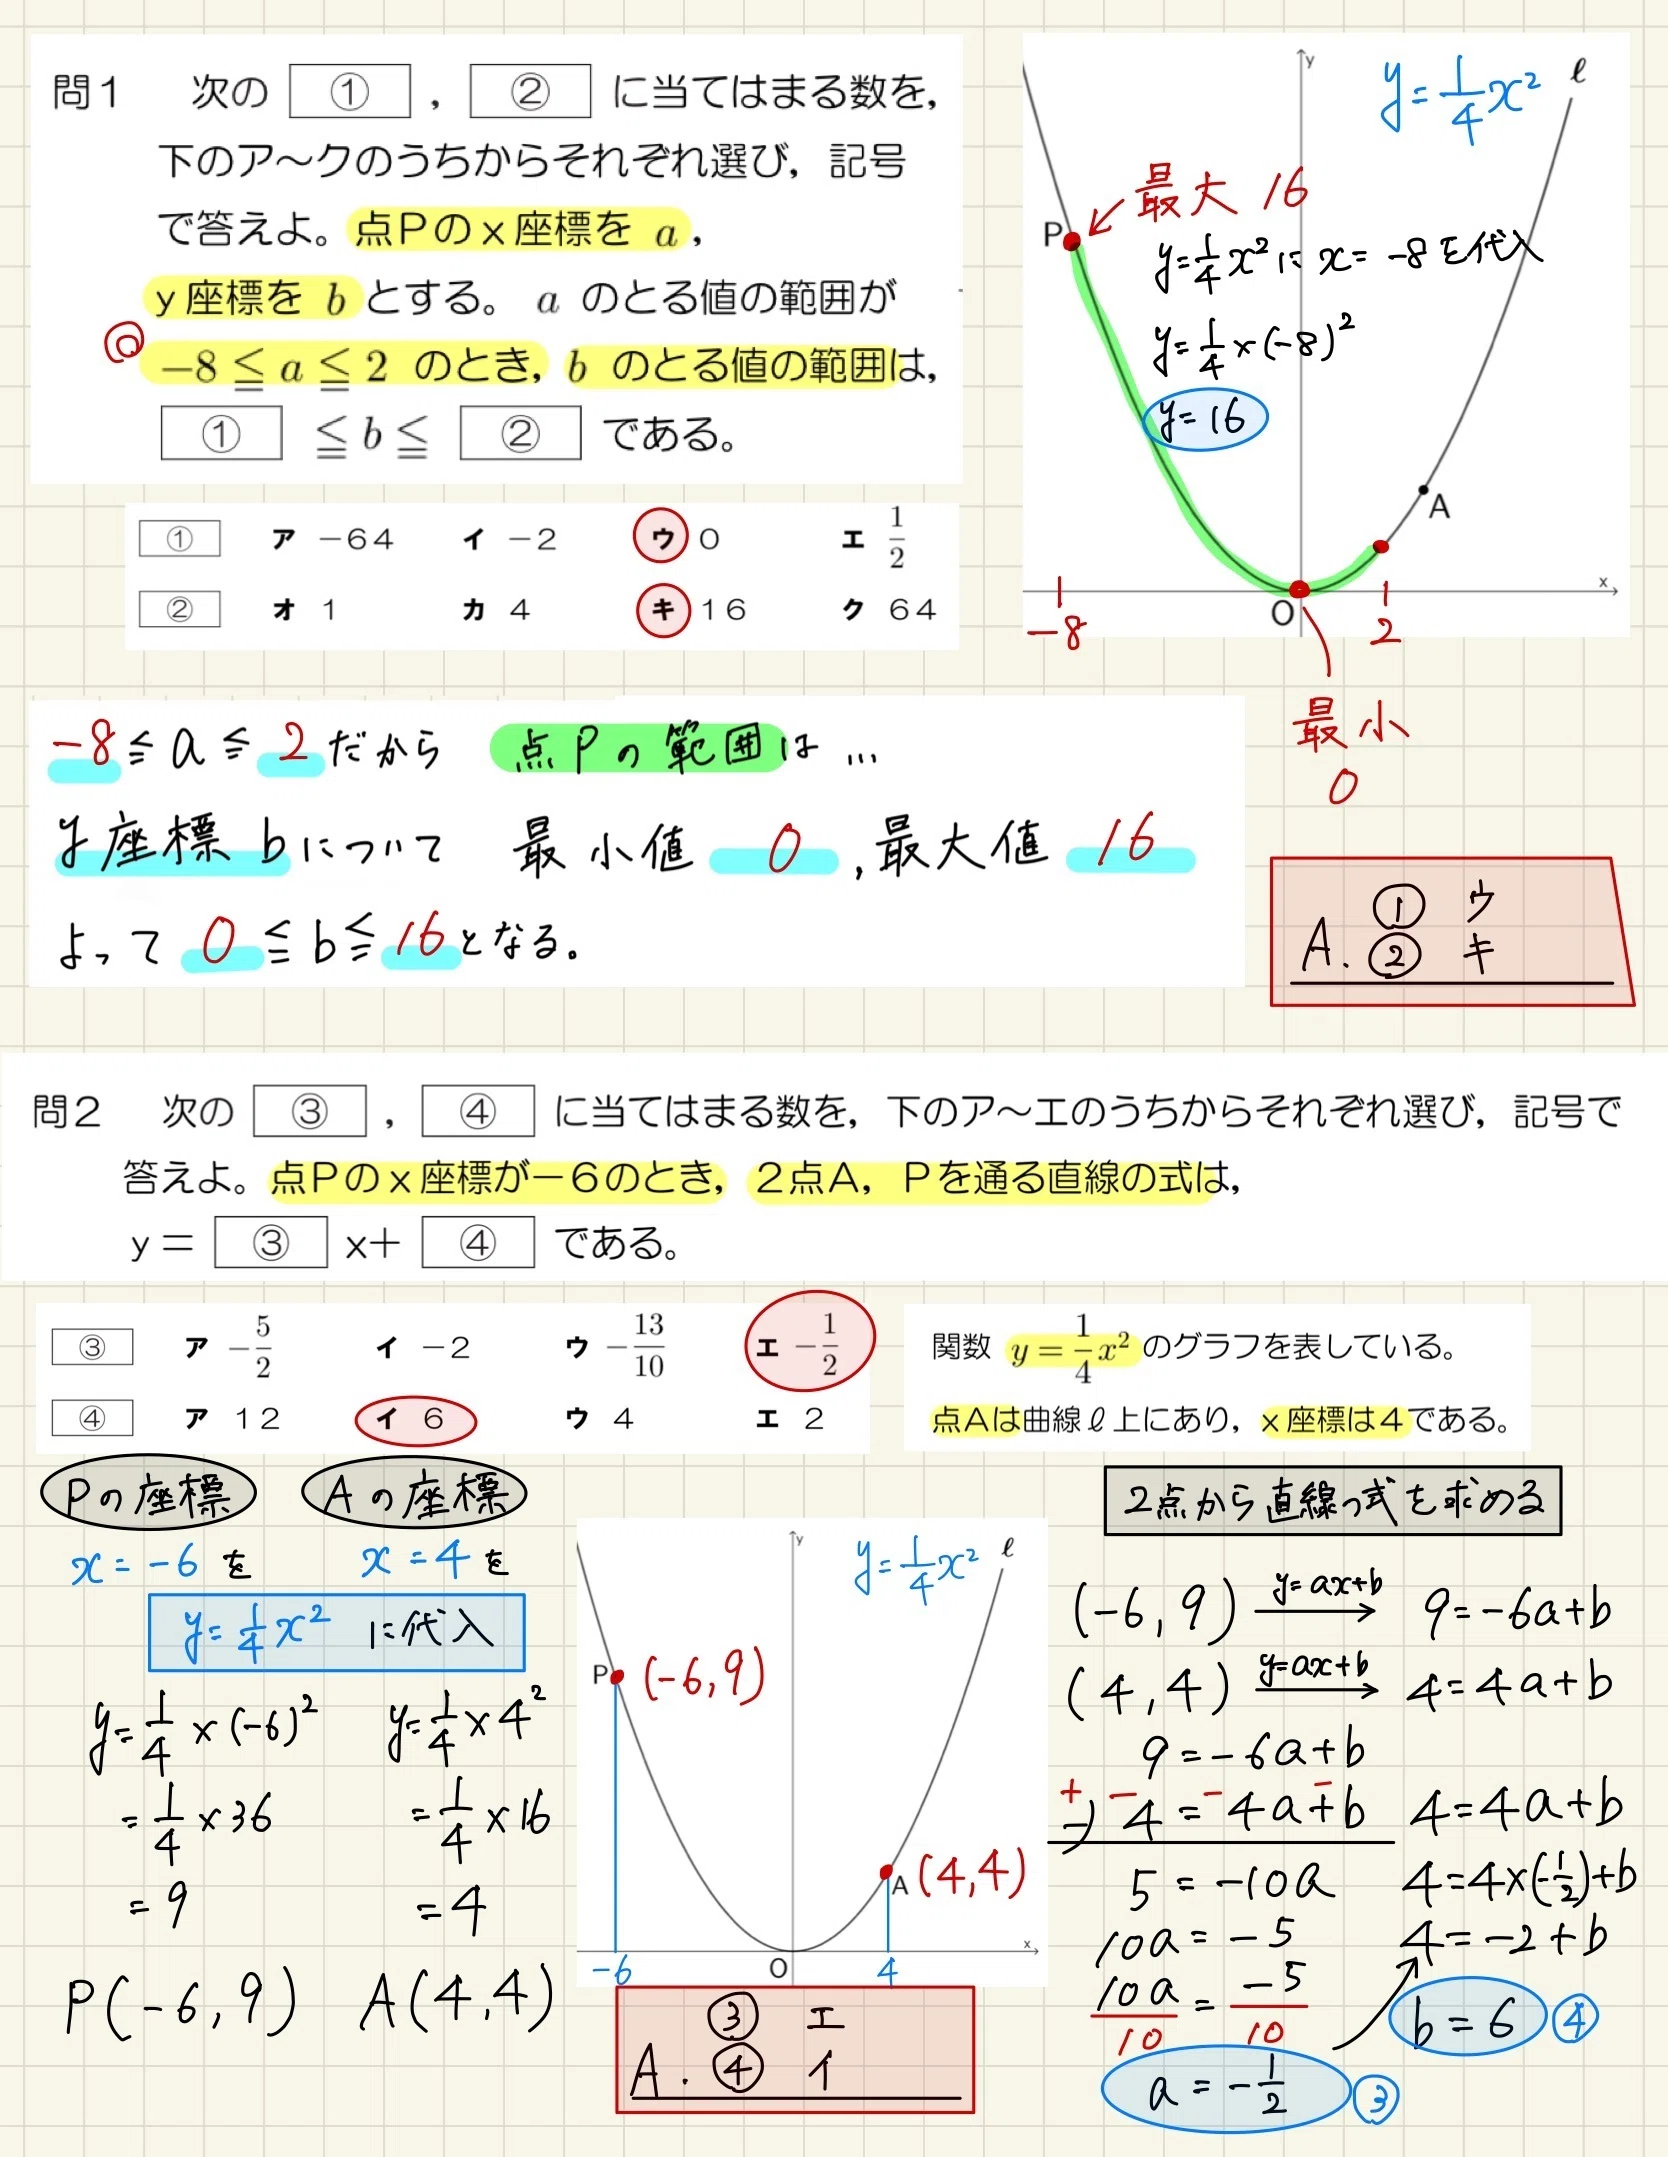 問1 次の ① , ② に当てはまる数を,
下のア～クのうちからそれぞれ選び, 記号
で答えよ。点Pのx座標を a,
y座標を b とする。 a のとる値の範囲が
-8 ≦ a ≦ 2 のとき, b のとる値の範囲は,
① ≦ b ≦ ② である。
① ア -64 イ -2 ウ 0 エ 1/2
② オ 1 カ 4 キ 16 ク 64
y
y=1/4x² ℓ
最大 16
P
y=1/4x²に x= -8を代入
y=1/4×(-8)²
y=16
A
x
O
-8
2
最小
0
-8≦a≦2だから 点Pの範囲は…
y座標 bについて 最小値 0, 最大値 16
よって 0≦b≦16となる。
A. ① ウ
② キ
問2 次の ③ , ④ に当てはまる数を, 下のア～エのうちからそれぞれ選び, 記号で
答えよ。点Pのx座標が-6のとき, 2点A, Pを通る直線の式は,
y= ③ x+ ④ である。
③ ア -5/2 イ -2 ウ -13/10 エ -1/2
④ ア 12 イ 6 ウ 4 エ 2
関数 y=1/4x² のグラフを表している。
点Aは曲線ℓ上にあり, x座標は4である。
Pの座標 Aの座標
x=-6を x=4を
y=1/4x² に代入
y=1/4×(-6)² y=1/4×4²
=1/4×36 =1/4×16
=9 =4
P(-6,9) A(4,4)
y
y=1/4x² ℓ
P (-6,9)
A (4,4)
x
-6 O 4
A. ③ エ
④ イ
2点から直線の式を求める
(-6,9) y=ax+b → 9=-6a+b
(4,4) y=ax+b → 4=4a+b
9=-6a+b
+ - - -
-) 4=4a+b
5=-10a
10a=-5
10a/10=-5/10
a=-1/2 ③
4=4a+b
4=4×(-1/2)+b
4=-2+b
b=6 ④